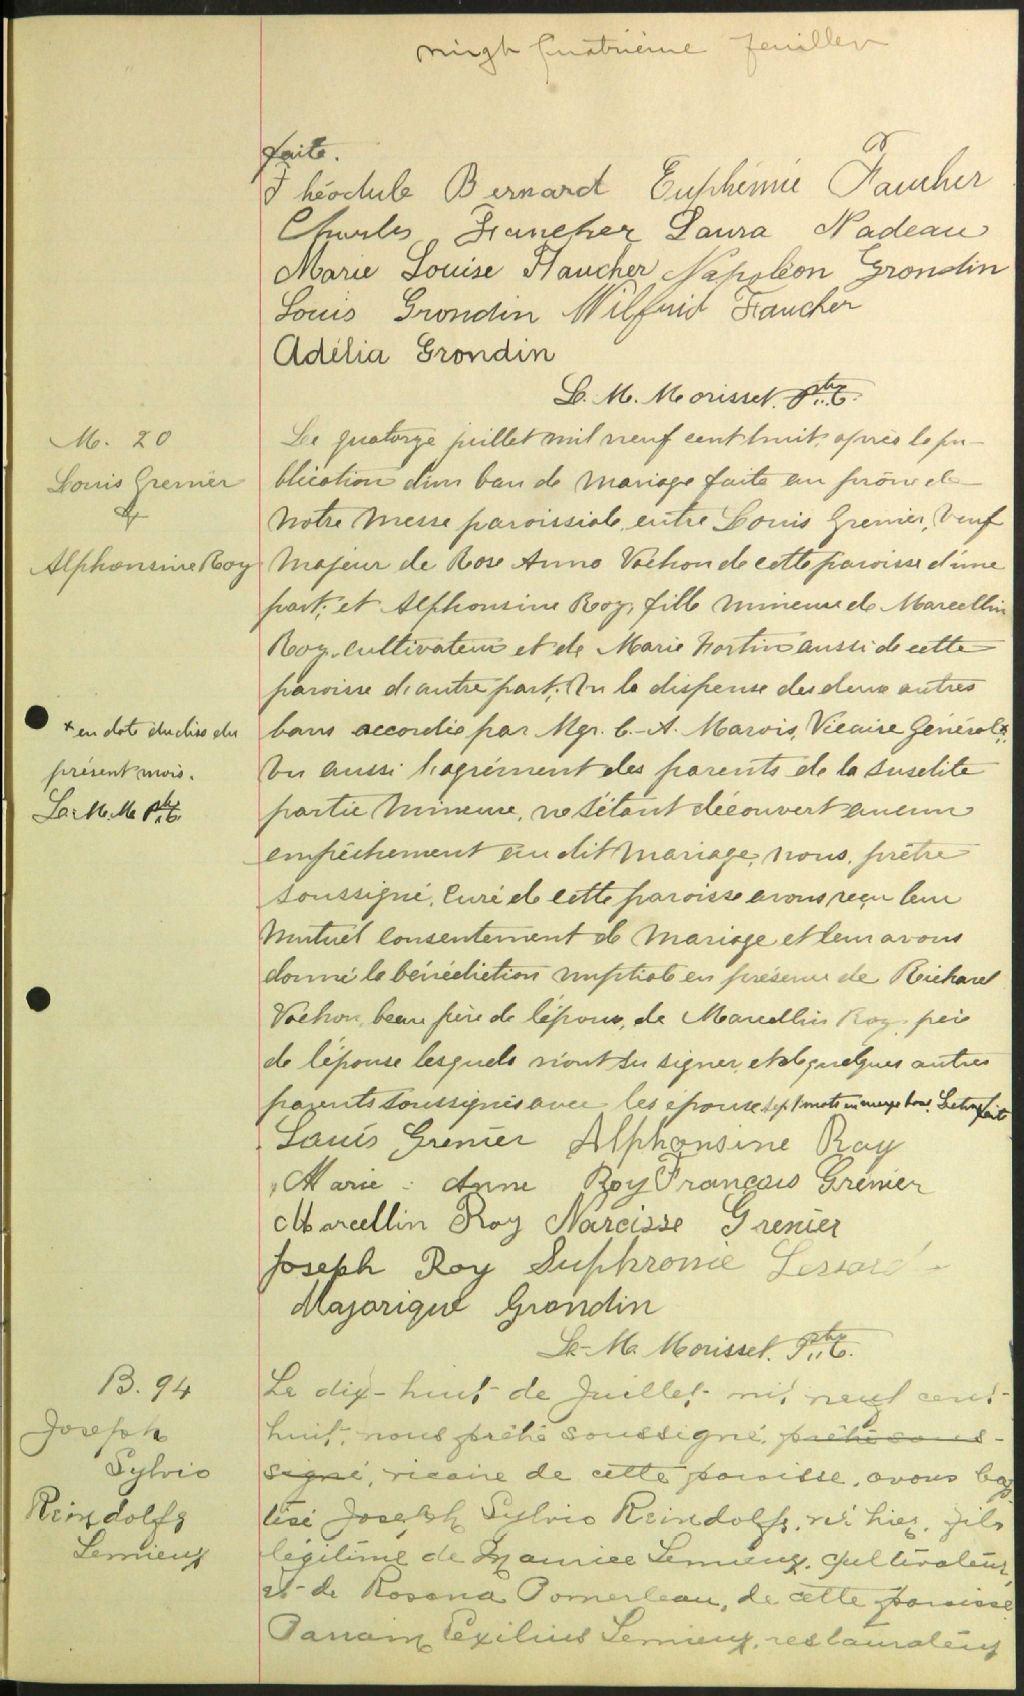 vingt quatrième feuillet
faite.
Théodule Bernard Euphémie Faucher
Charles Faucher Laura Nadeau
Marie Louise Faucher Napoléon Grondin
Louis Grondin Wilfrid Faucher
Adélia Grondin
L. M. Morisset. Ptre
M. 20
Louis Grenier
&
Alphonsine Roy
Le quatorze juillet mil neuf cent huit, après la pu-
blication d'un ban de mariage faite au prône de
notre messe paroissiale, entre Louis Grenier, veuf
majeur de Rose Anna Vachon de cette paroisse d'une
part; et Alphonsine Roy, fille mineure de Marcellin
Roy, cultivateur et de Marie Fortin aussi de cette
paroisse d'autre part; Vu la dispense des deux autres
bans accordée par Mgr. C.-A. Marois, Vicaire Général x
x en date du dix du
présent mois.
L. M. M. Ptre
Vu aussi l'agrément des parents de la susdite
partie mineure, ne s'étant découvert aucun
empêchement au dit mariage, nous, prêtre
soussigné, curé de cette paroisse avons reçu leur
mutuel consentement de mariage et leur avons
donné la bénédiction nuptiale en présence de Richard
Vachon, beau frère de l'époux, de Marcellin Roy père
de l'épouse lesquels n'ont su signer, et de quelques autres
parents soussignés avec les époux. Sept mots en marge bons. Lecture faite
Louis Grenier Alphonsine Roy
Marie-Anne Roy François Grenier
Marcellin Roy Narcisse Grenier
Joseph Roy Suphronie Lessard
Majorique Grondin
L. M. Morisset. Ptre
B. 94
Joseph
Sylvio
Reindolf
Lemieux
Le dix-huit de Juillet mil neuf cent
huit, nous prêtre soussigné, prêtre sous-
signé, vicaire de cette paroisse, avons bap
tisé Joseph Sylvio Reindolf, né hier, fils
légitime de Maurice Lemieux, cultivateur,
et de Rosana Pomerleau, de cette paroisse
Parrain Exilius Lemieux, restaurateur